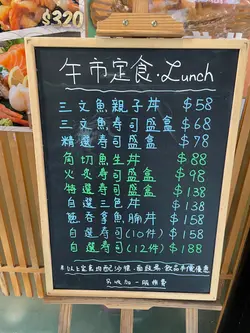 $320
午市定食·Lunch
三文魚親子丼 $58
三文魚寿司盛盒 $68
精選寿司盛盒 $78
角切魚生丼 $88
火炙寿司盛盒 $98
特選寿司盛盒 $138
自選三色丼 $138
魚腩丼 $158
自選寿司(10件) $158
自選寿司(12件) $188
另收加一服務費